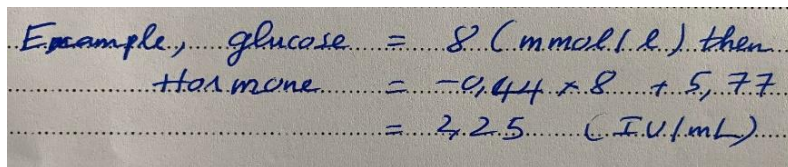 Example, glucose = 8 (mmol/l) then
Hormone = -0,44 x 8 + 5,77
= 2,25 (IU/mL)